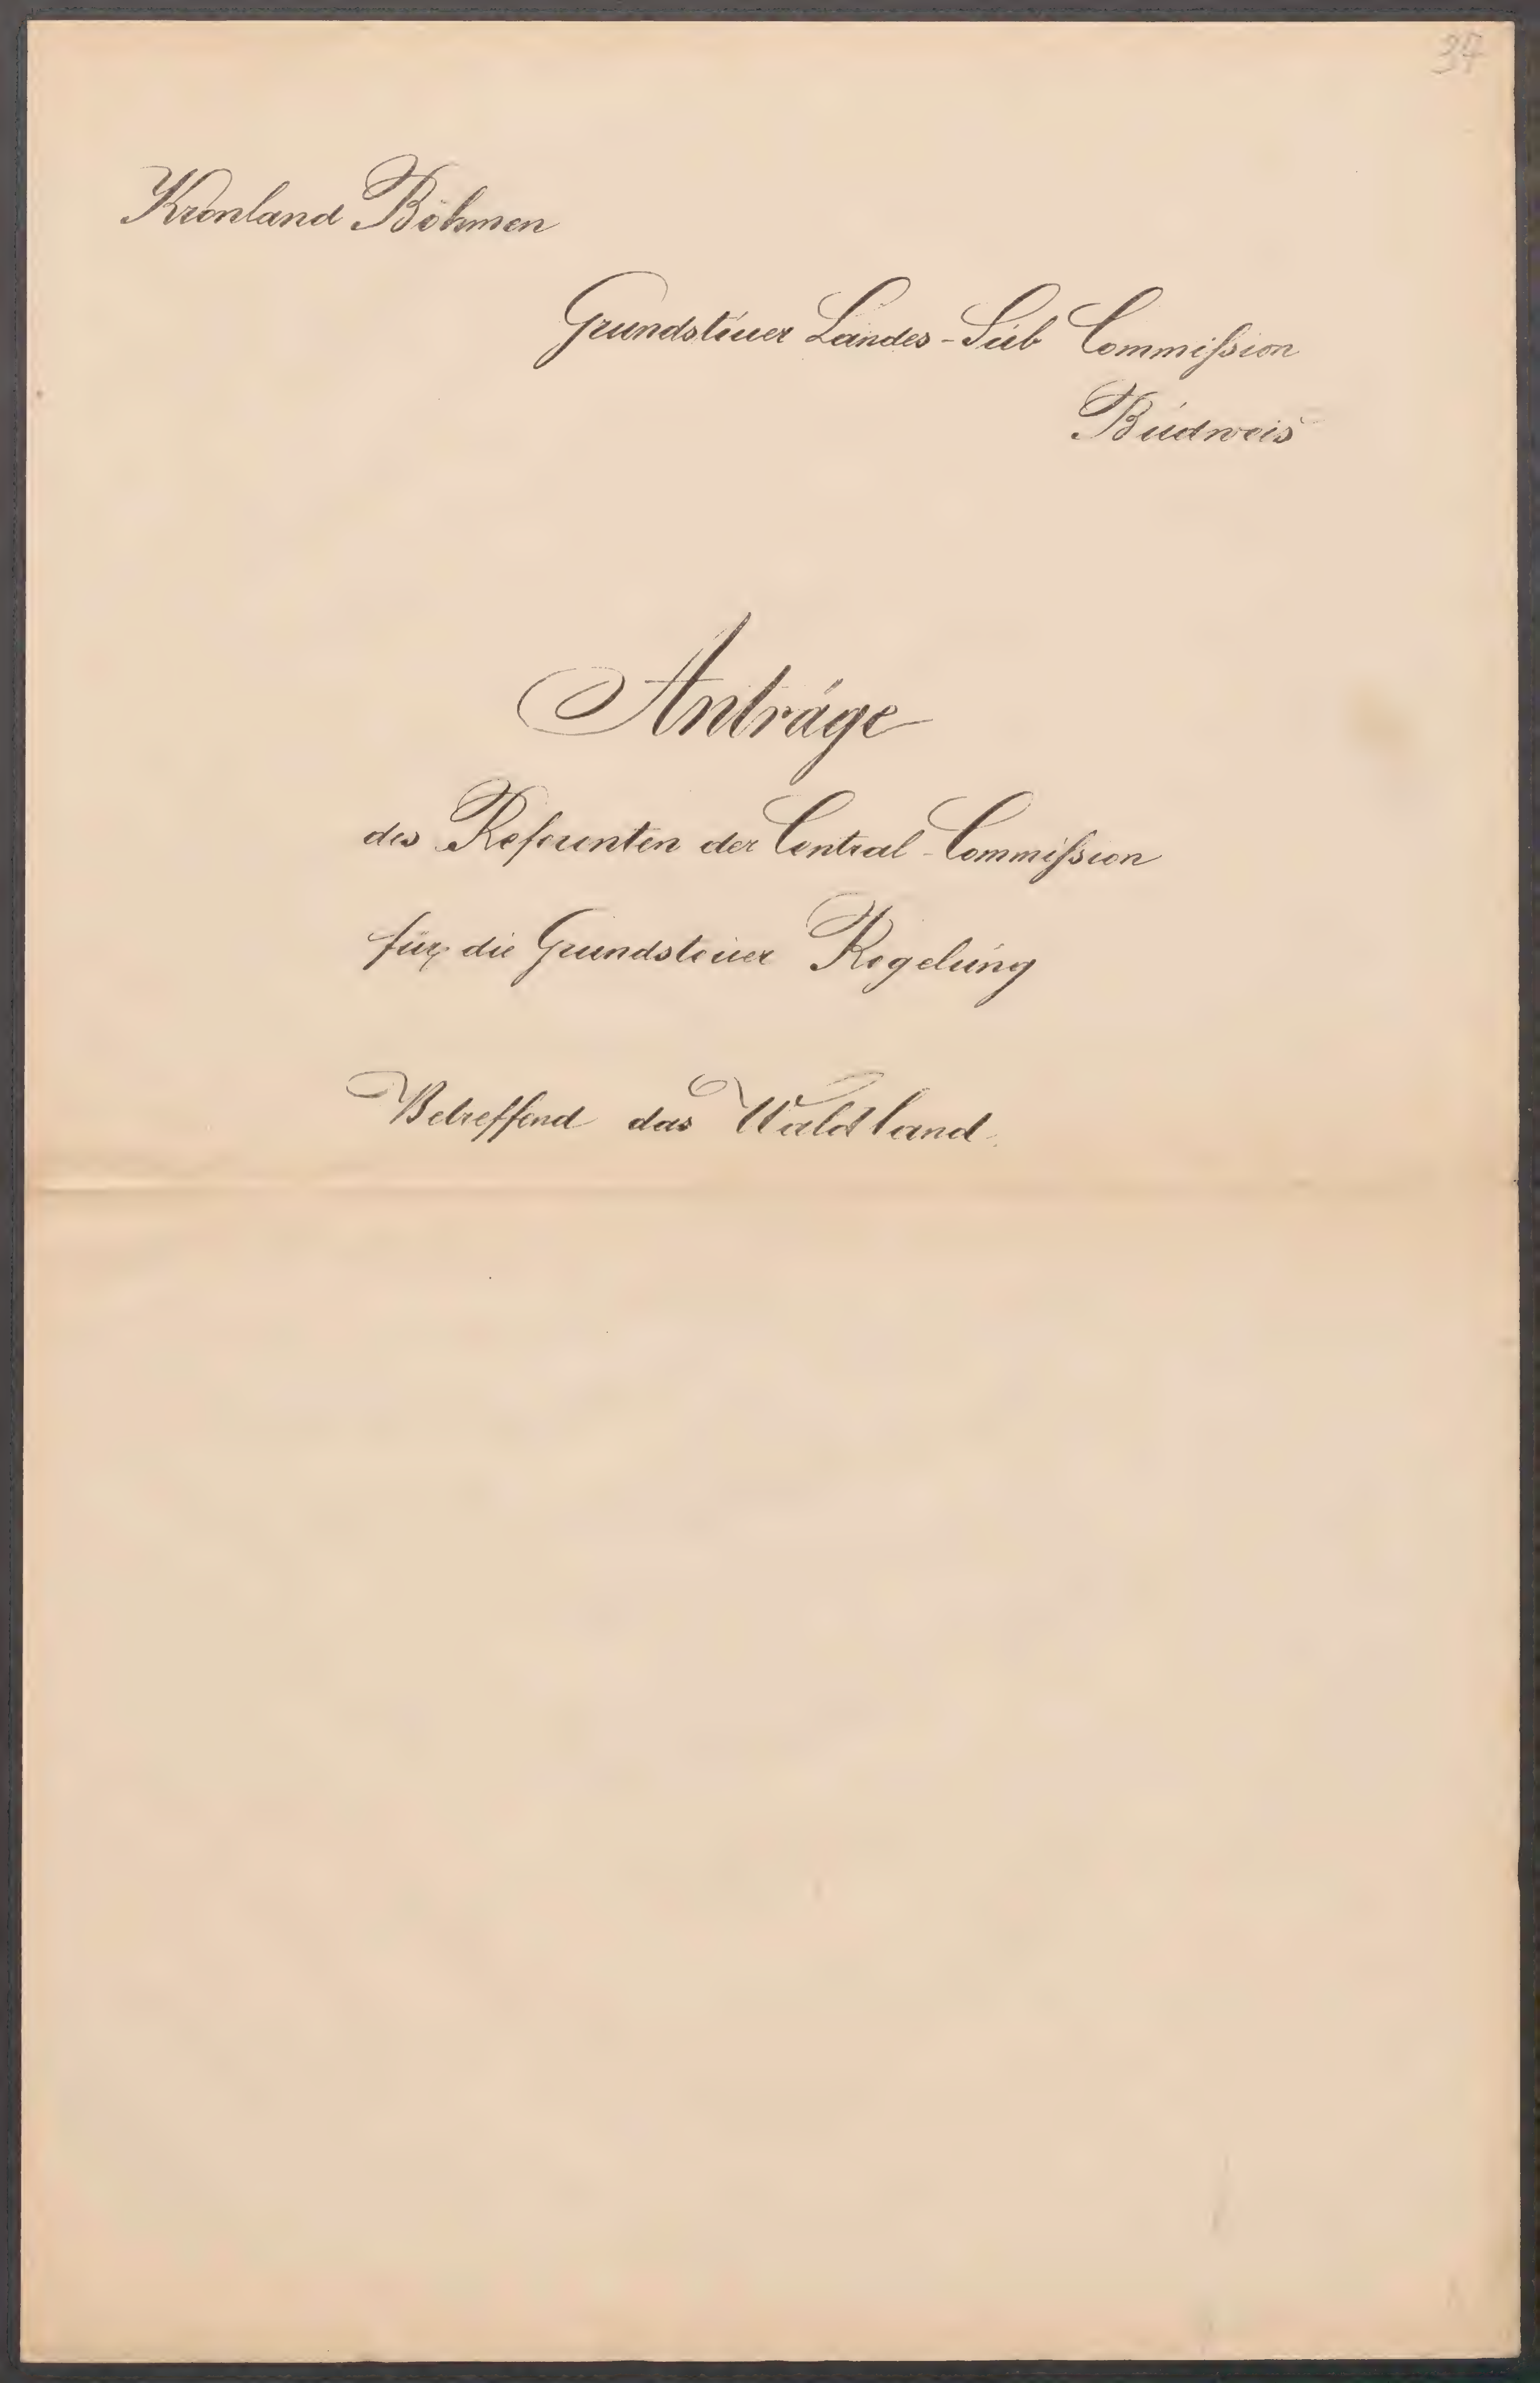 37
Kronland Böhmen
Grundsteuer Landes-Sub Commißion
Budweis
Anträge
des Referenten der Central-Commißion
für die Grundsteuer Regelung
Betreffend das Waldland.